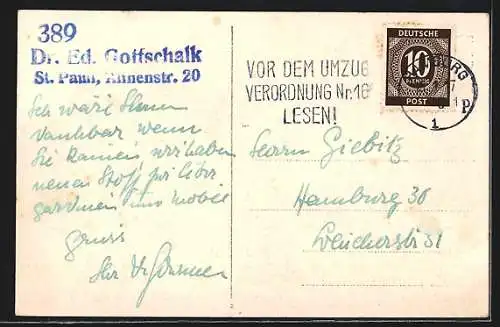 389
Dr. Ed. Gottschalk
St. Pauli, Annenstr. 20
Ich wäre Ihnen
dankbar wenn
Sie kämen wir haben
neuen Stoff für
gardinen und
Gruss
Ihr
VOR DEM UMZUG
VERORDNUNG Nr. 16
LESEN!
DEUTSCHE
10
PFENNIG
POST
BURG
1
P
Herrn Giebitz
Hamburg 36
31